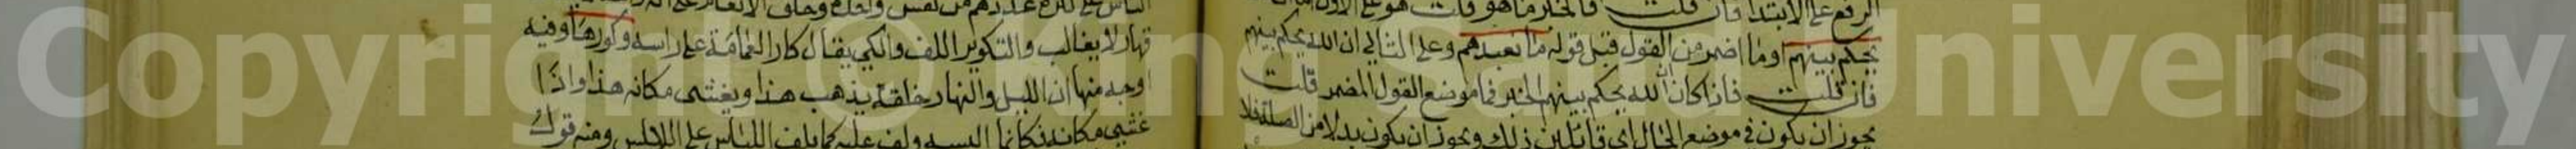 الرفع على الابتداء فان قلت فالخبر ما هو قلت هو على الاول اما ان
يحكم بينهم او ما اضمر من القول قبل قوله ما نعبدهم وعلى الثاني ان الله يحكم بينهم
فان قلت فاذا كان ان الله يحكم بينهم الخبر فما موضع القول المضمر قلت
يجوز ان يكون في موضع الحال اي قائلين ذلك ويجوز ان يكون بدلا من الصلة فلا
قهار لا يغالب والتكوير اللف والكي يقال كار العمامة على راسه وكورها وفيه
اوجه منها ان الليل والنهار خلفة يذهب هذا ويغشى مكانه هذا واذا
غشي مكانه فكانما البسه ولف عليه كما يلف اللباس على اللابس ومنه قول
Copyright © King Saud University